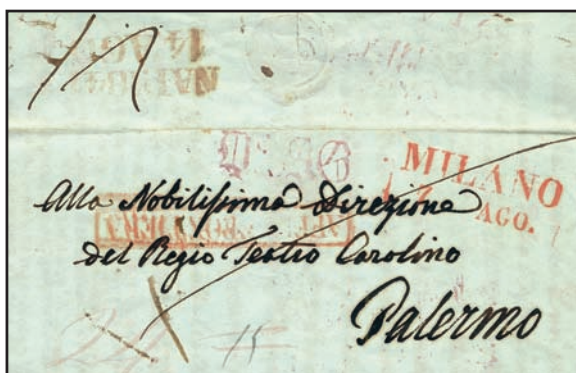 14 AGO
MILANO
AGO.
Alla Nobilissima Direzione
del Regio Teatro Carolino
Palermo
24
15